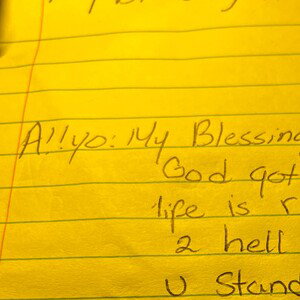 A!!yo: My Blessing
God got
life is r
2 hell
U Stand